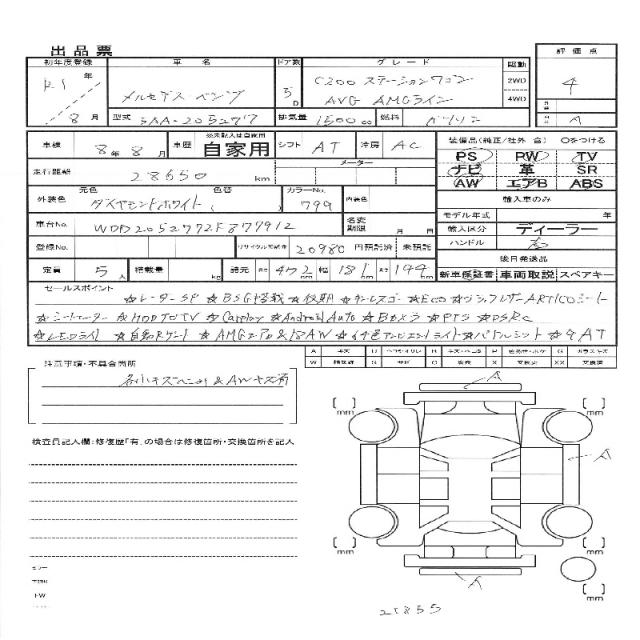 出品票
初年度登録 車名 ドア数 グレード 駆動 評価点
R1年 メルセデス ベンツ 5D C200 ステーションワゴン 2WD 4
8月 AVG AMGライン 4WD
型式 5AA-205277 排気量 1500cc 燃料 ガソリン A
車検 8年8月 車歴 ※未記入は自家用 自家用 シフト AT 冷房 AC 装備品(純正/社外 含) ○をつける
走行距離 28650 km メーター PS PW TV
ナビ 革 SR
外装色 元色 ダイヤモンドホワイト ( 色替 ) カラーNo. 799 内装色 AW エアB ABS
輸入車のみ
車台No. WDD2052772F877912 名変期限 月 日 モデル年式 年
輸入区分 ディーラー
登録No. リサイクル預託金 20980 円預託済 未預託 ハンドル 右
後日発送品
定員 5人 積載量 kg 諸元 長さ 472 幅 181 高さ 144 新車保証書 車両取説 スペアキー
セールスポイント
★レーダーSP ★BSG搭載 ★後期 ★キーレスゴー ★Eco ★ブラックレザーARTICOシート
★シートヒーター ★HDDナビTV ★Carplay ★Android Auto ★Bカメラ ★PTS ★DSRC
★LEDライト ★自動Rゲート ★AMGエアロ&18AW ★64色アンビエントライト ★パドルシフト ★9AT
注意事項・不具合箇所
各小キズヘコミ&AWキズ有
A
検査員記入欄:修復歴「有」の場合は修復箇所・交換箇所を記入
[ ] mm
[ ] mm
A
[ ] mm
[ ] mm
A
21855